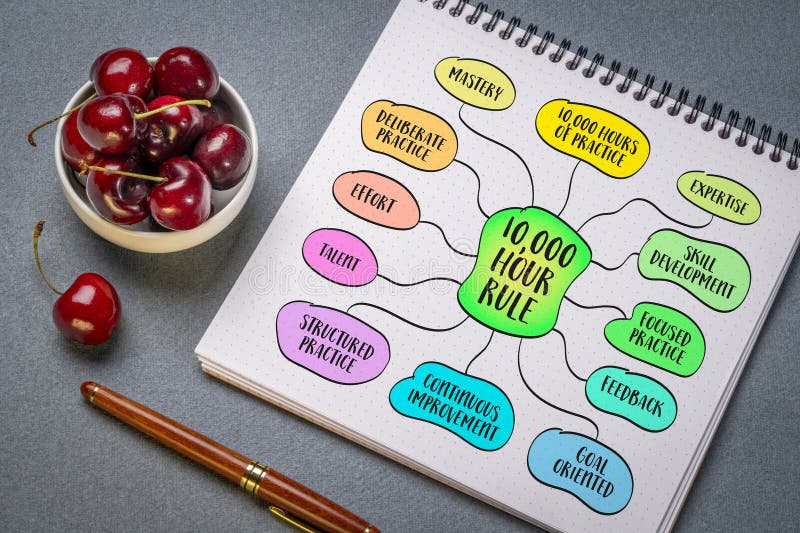 MASTERY
10,000 HOURS
OF PRACTICE
DELIBERATE
PRACTICE
EXPERTISE
EFFORT
SKILL
DEVELOPMENT
10,000
HOUR
RULE
TALENT
FOCUSED
PRACTICE
STRUCTURED
PRACTICE
FEEDBACK
CONTINUOUS
IMPROVEMENT
GOAL
ORIENTED